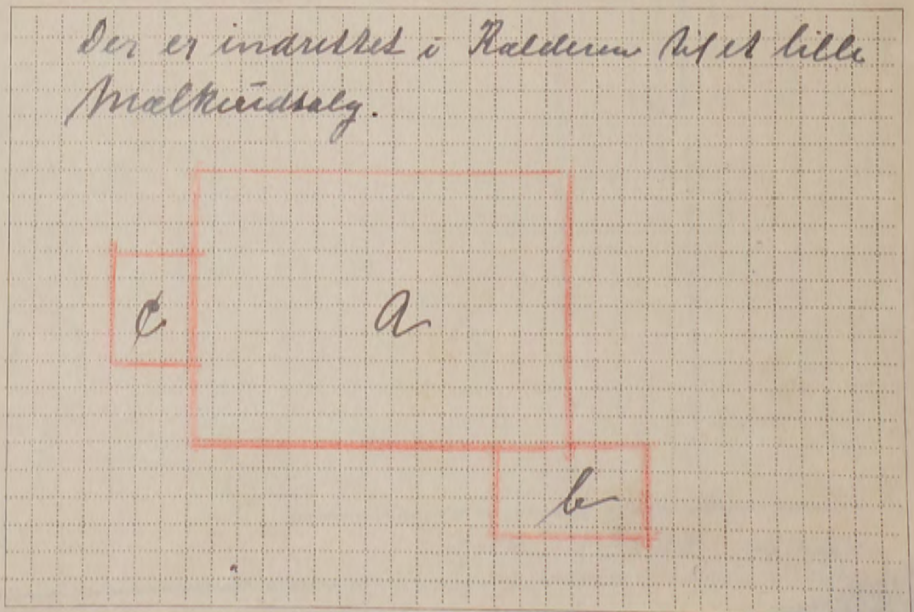 Der er indrettet i Kælderen til et lille
Mælkeudsalg.
c
a
b